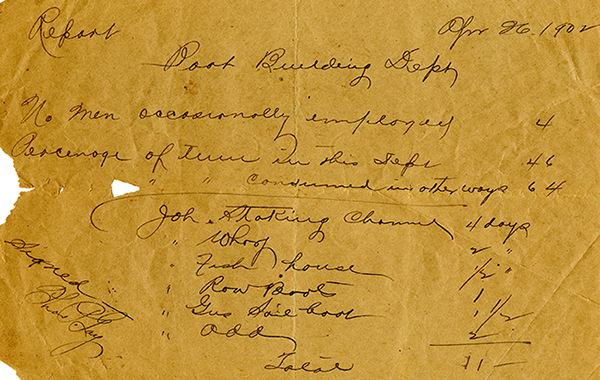 Report Apr 26. 1902
Boat Building Dept
No Men occasionally employed 4
Percenage of time in this Dept 46
" " Consumed in other ways 64
Job. Staking Channel 4 days
" Whorf 2 "
" Fish house 1/2 "
" Row Boots 1
" Gus Sail boot 1 1/2
" Odd 2
Total 11 -
Signed